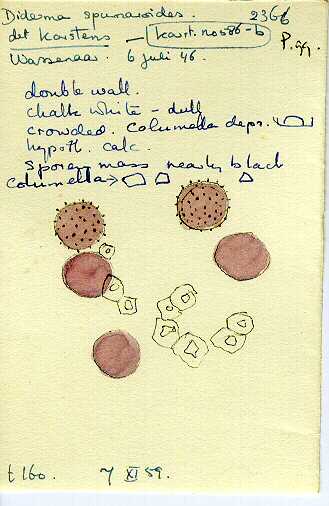 Diderma spumarioides. 2366
det Karstens – Karst. no 586-b
Wassenaar. 6 juli 46. P. 99.
double wall.
chalk white – dull
crowded. Columella depr.
hypoth. calc.
spore-mass nearly black
columella
t 160. 7 XI 59.